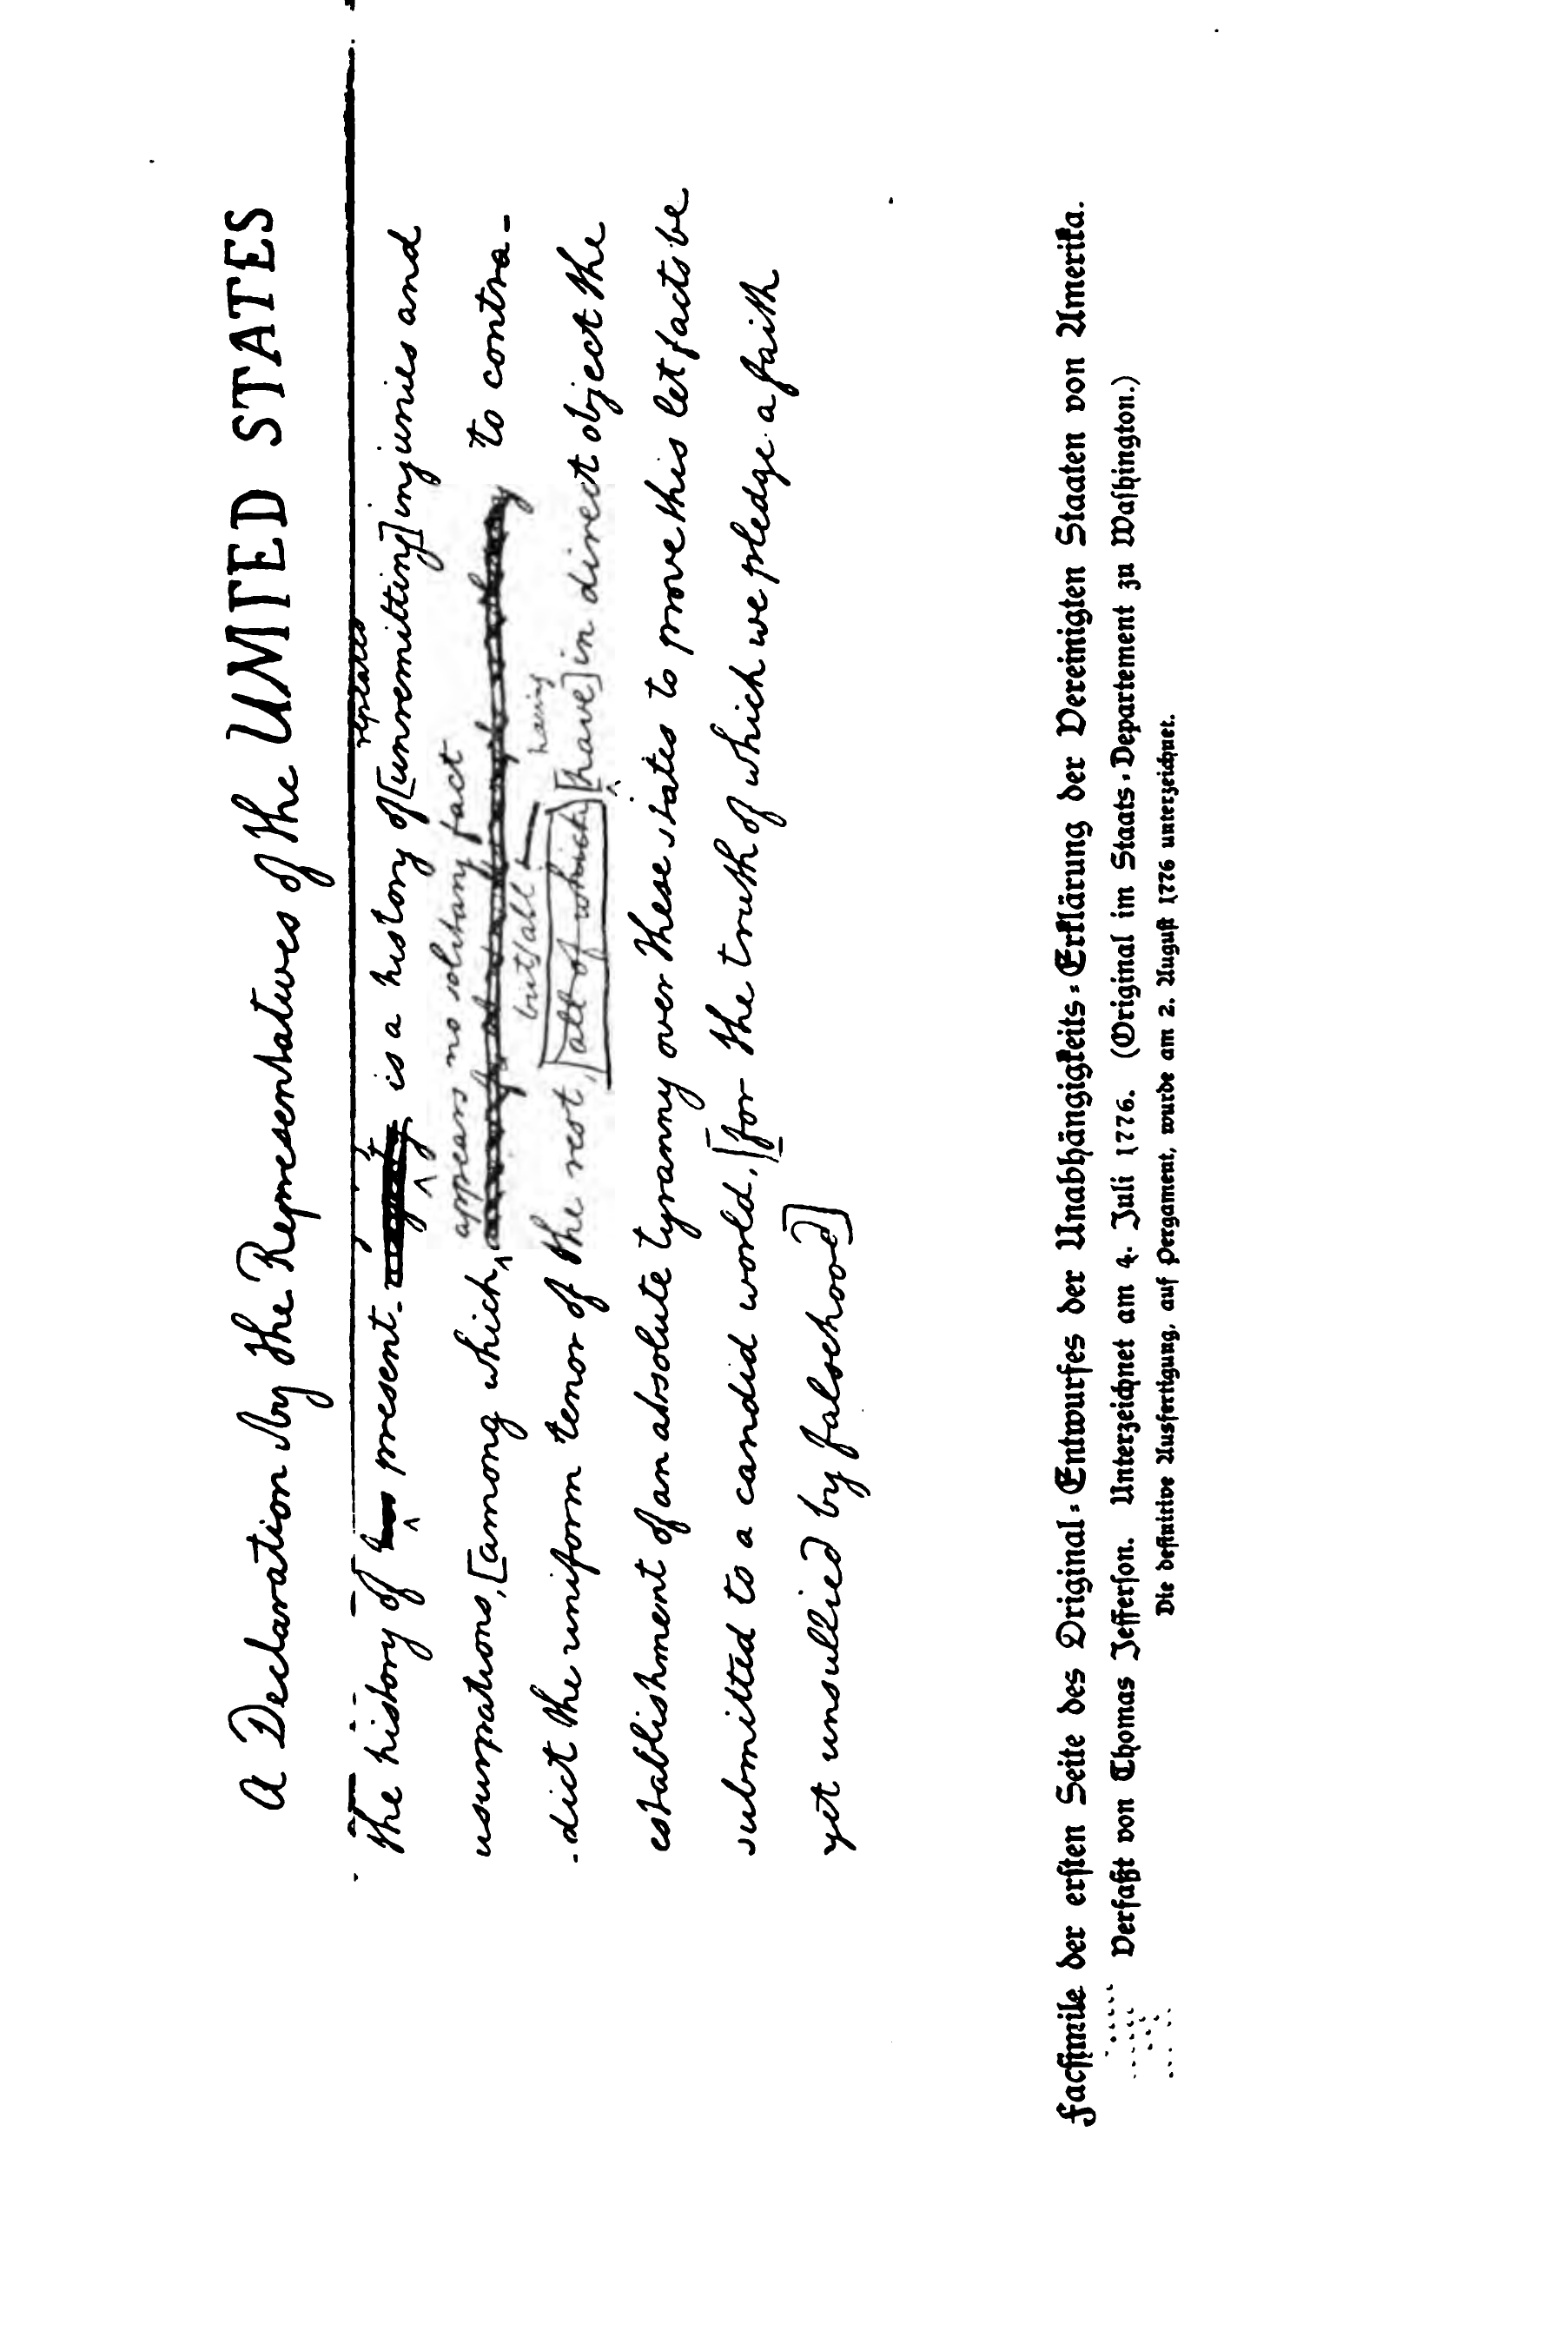 a Declaration by the Representatives of the UNITED STATES
repeated
The history of his present is a history of [unremitting] injuries and
appears no solitary fact
usurpations, [among which, to contra-
but all having
-dict the uniform tenor of the rest, [all of which] [have] in direct object the
establishment of an absolute tyranny over these states to prove this let facts be
submitted to a candid world, [for the truth of which we pledge a faith
yet unsullied by falsehood]
Facsimile der ersten Seite des Original-Entwurfes der Unabhängigkeits-Erklärung der Vereinigten Staaten von Amerika.
Verfaßt von Thomas Jefferson. Unterzeichnet am 4. Juli 1776. (Original im Staats-Departement zu Washington.)
Die definitive Ausfertigung, auf Pergament, wurde am 2. August 1776 unterzeichnet.